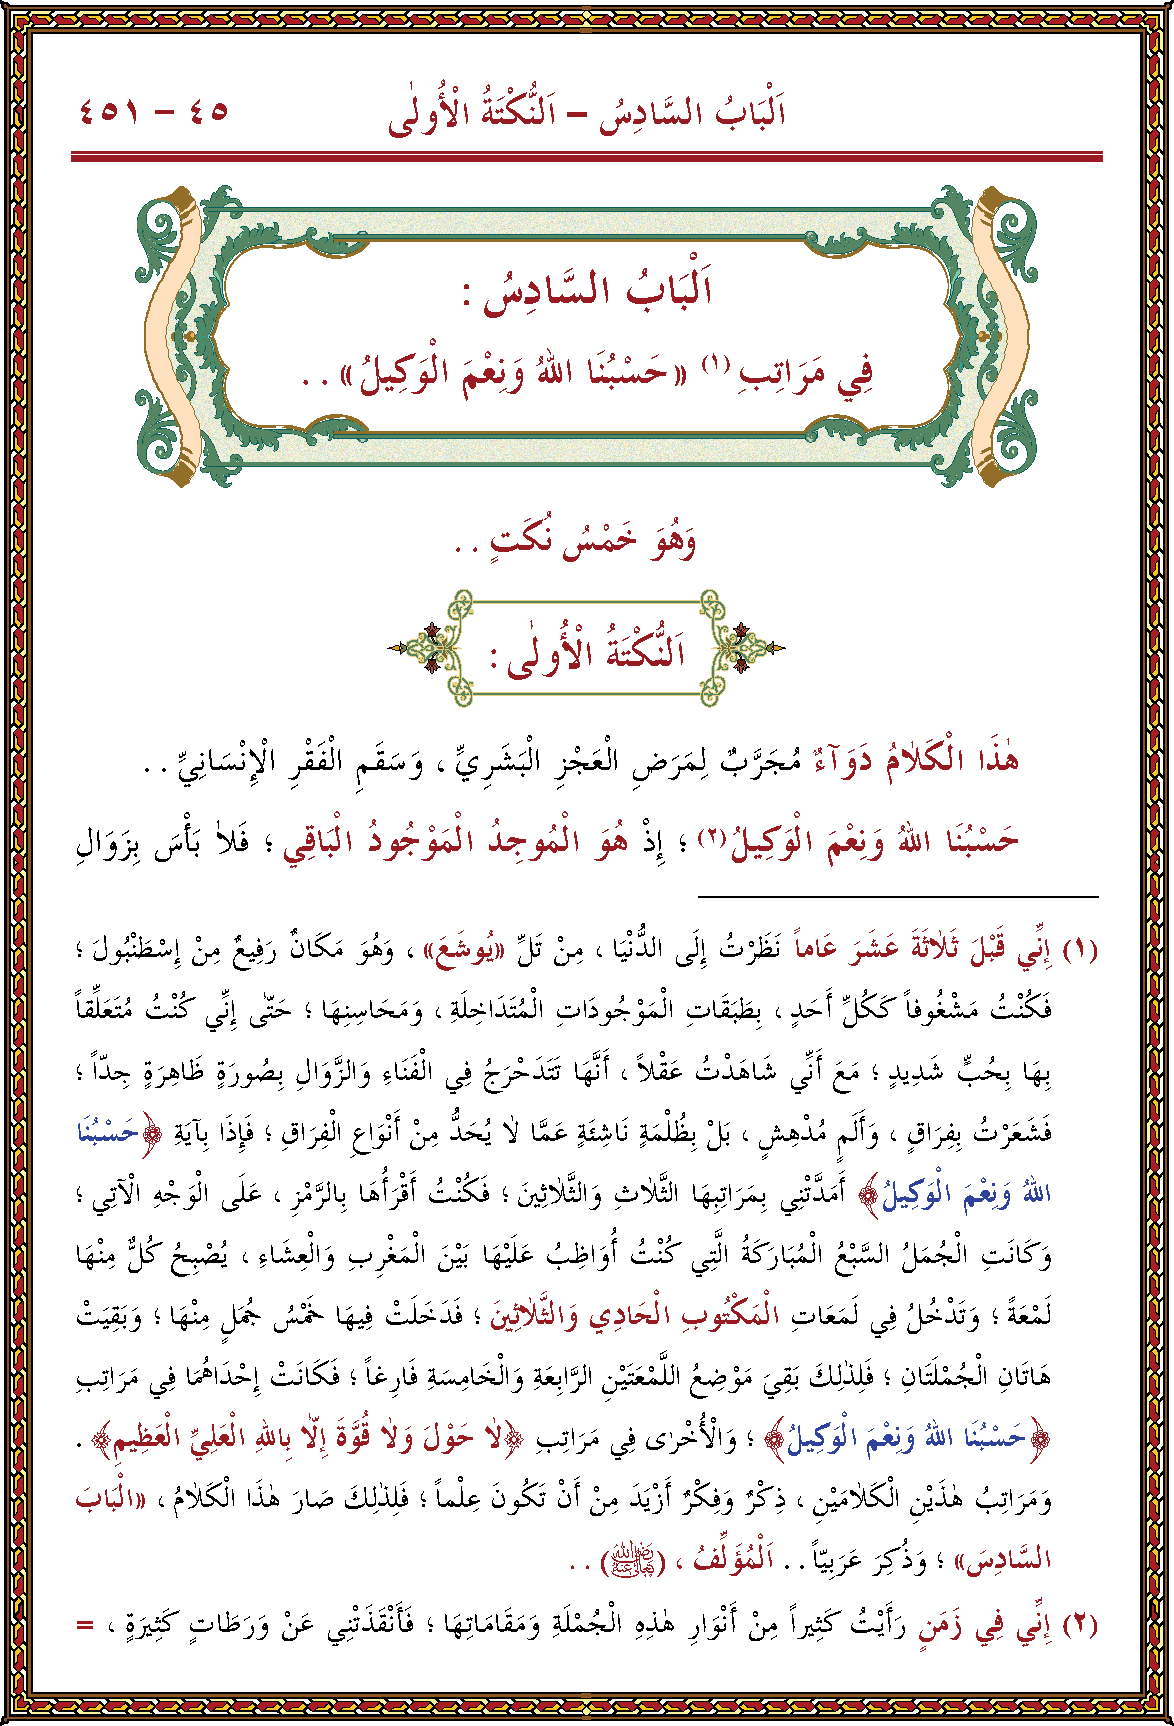 اَلْبَابُ السَّادِسُ – اَلنُّكْتَةُ الْأُولٰى ٤٥ – ٤٥١
اَلْبَابُ السَّادِسُ :
فِي مَرَاتِبِ (١) «حَسْبُنَا اللهُ وَنِعْمَ الْوَكِيلُ» . .
وَهُوَ خَمْسُ نُكَتٍ . .
اَلنُّكْتَةُ الْأُولٰى :
هٰذَا الْكَلَامُ دَوَآءٌ مُجَرَّبٌ لِمَرَضِ الْعَجْزِ الْبَشَرِيِّ ، وَسَقَمِ الْفَقْرِ الْإِنْسَانِيِّ . .
حَسْبُنَا اللهُ وَنِعْمَ الْوَكِيلُ(٢) ؛ إِذْ هُوَ الْمُوجِدُ الْمَوْجُودُ الْبَاقِي ؛ فَلَا بَأْسَ بِزَوَالِ
(١) إِنِّي قَبْلَ ثَلَاثَةَ عَشَرَ عَاماً نَظَرْتُ إِلَى الدُّنْيَا ، مِنْ تَلِّ «يُوشَعَ» ، وَهُوَ مَكَانٌ رَفِيعٌ مِنْ إِسْطَنْبُولَ ؛
فَكُنْتُ مَشْغُوفاً كَكُلِّ أَحَدٍ ، بِطَبَقَاتِ الْمَوْجُودَاتِ الْمُتَدَاخِلَةِ ، وَمَحَاسِنِهَا ؛ حَتّٰى إِنِّي كُنْتُ مُتَعَلِّقاً
بِهَا بِحُبٍّ شَدِيدٍ ؛ مَعَ أَنِّي شَاهَدْتُ عَقْلاً ، أَنَّهَا تَتَدَحْرَجُ فِي الْفَنَاءِ وَالزَّوَالِ بِصُورَةٍ ظَاهِرَةٍ جِدّاً ؛
فَشَعَرْتُ بِفِرَاقٍ ، وَأَلَمٍ مُدْهِشٍ ، بَلْ بِظُلْمَةٍ نَاشِئَةٍ عَمَّا لَا يُحَدُّ مِنْ أَنْوَاعِ الْفِرَاقِ ؛ فَإِذَا بِآيَةِ ﴿حَسْبُنَا
اللهُ وَنِعْمَ الْوَكِيلُ﴾ أَمَدَّتْنِي بِمَرَاتِبِهَا الثَّلَاثِ وَالثَّلَاثِينَ ؛ فَكُنْتُ أَقْرَأُهَا بِالرَّمْزِ ، عَلَى الْوَجْهِ الْآتِي ؛
وَكَانَتِ الْجُمَلُ السَّبْعُ الْمُبَارَكَةُ الَّتِي كُنْتُ أُوَاظِبُ عَلَيْهَا بَيْنَ الْمَغْرِبِ وَالْعِشَاءِ ، يُصْبِحُ كُلٌّ مِنْهَا
لَمْعَةً ؛ وَتَدْخُلُ فِي لَمَعَاتِ الْمَكْتُوبِ الْحَادِي وَالثَّلَاثِينَ ؛ فَدَخَلَتْ فِيهَا خَمْسُ جُمَلٍ مِنْهَا ؛ وَبَقِيَتْ
هَاتَانِ الْجُمْلَتَانِ ؛ فَلِذٰلِكَ بَقِيَ مَوْضِعُ اللَّمْعَتَيْنِ الرَّابِعَةِ وَالْخَامِسَةِ فَارِغاً ؛ فَكَانَتْ إِحْدَاهُمَا فِي مَرَاتِبِ
﴿حَسْبُنَا اللهُ وَنِعْمَ الْوَكِيلُ﴾ ؛ وَالْأُخْرٰى فِي مَرَاتِبِ ﴿لَا حَوْلَ وَلَا قُوَّةَ إِلَّا بِاللهِ الْعَلِيِّ الْعَظِيمِ﴾ .
وَمَرَاتِبُ هٰذَيْنِ الْكَلَامَيْنِ ، ذِكْرٌ وَفِكْرٌ أَزْيَدَ مِنْ أَنْ تَكُونَ عِلْماً ؛ فَلِذٰلِكَ صَارَ هٰذَا الْكَلَامُ ، «الْبَابَ
السَّادِسَ» ؛ وَذُكِرَ عَرَبِيّاً . . اَلْمُؤَلِّفُ ، (رضي الله تعالى عنه) . .
(٢) إِنِّي فِي زَمَنٍ رَأَيْتُ كَثِيراً مِنْ أَنْوَارِ هٰذِهِ الْجُمْلَةِ وَمَقَامَاتِهَا ؛ فَأَنْقَذَتْنِي عَنْ وَرَطَاتٍ كَثِيرَةٍ ، =